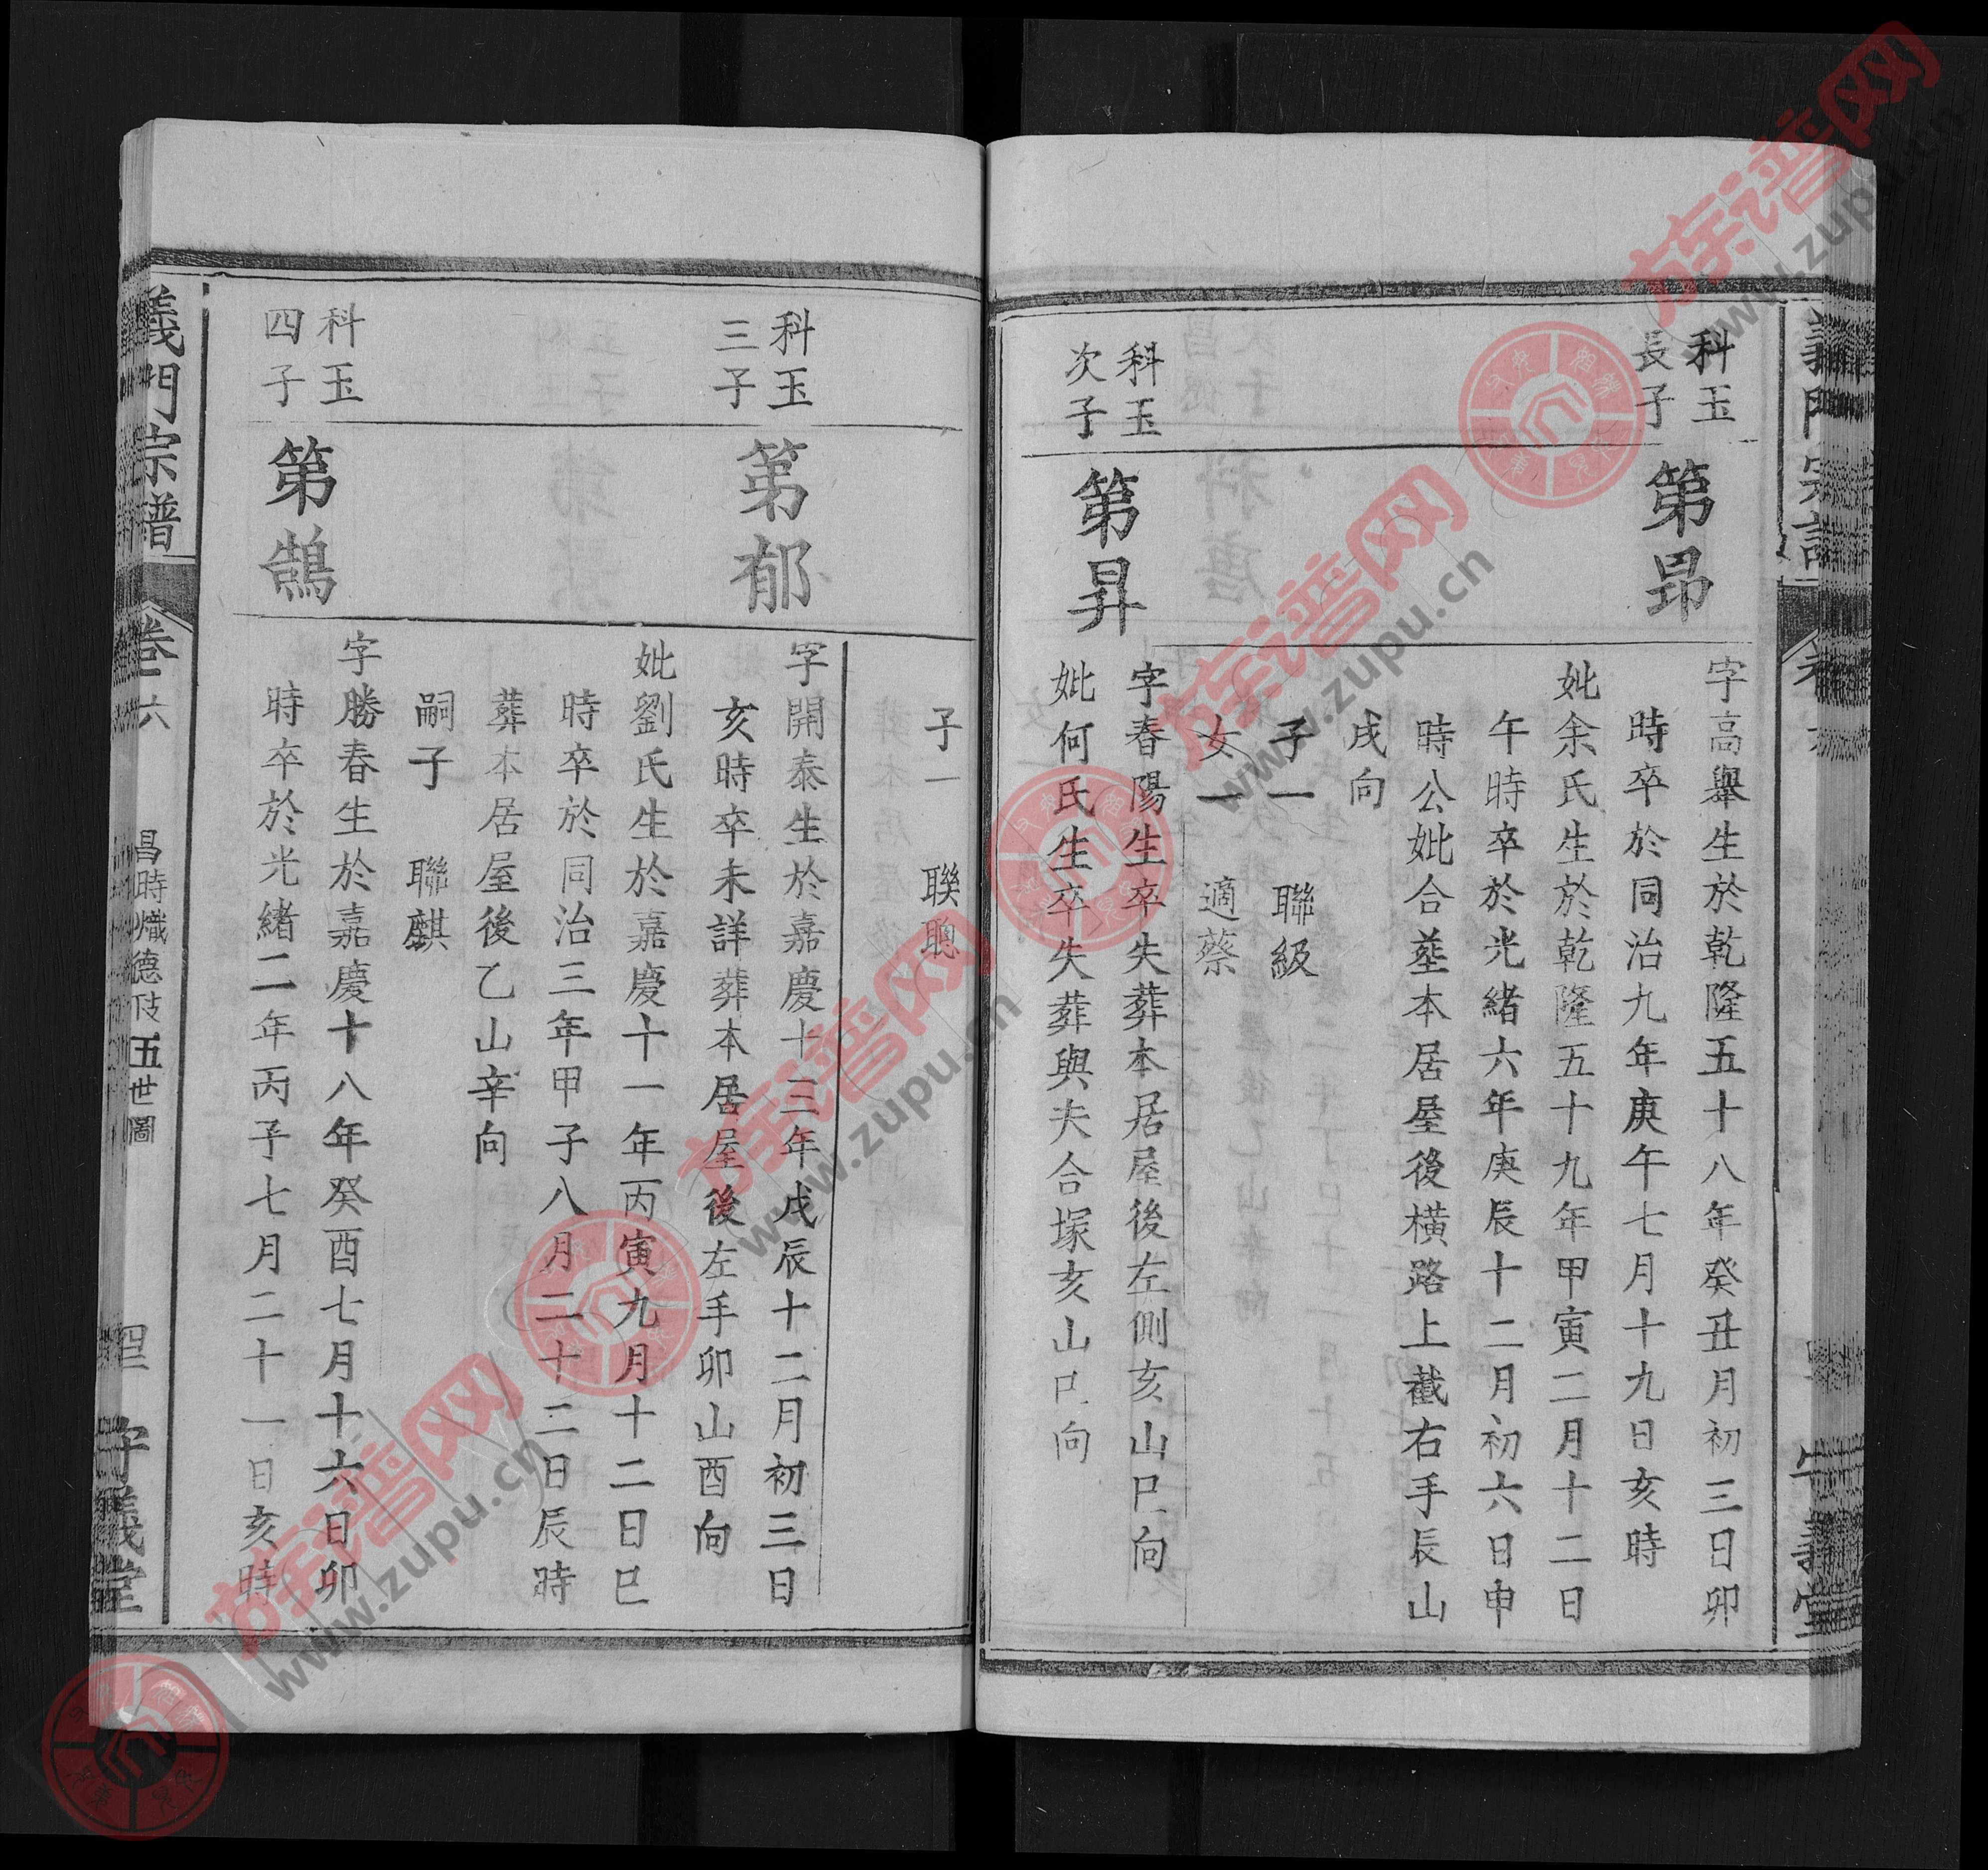 科玉
長子
第昂
字高舉生於乾隆五十八年癸丑月初三日卯
時卒於同治九年庚午七月十九日亥時
妣余氏生於乾隆五十九年甲寅二月十二日
午時卒於光緒六年庚辰十二月初六日申
時公妣合塟本居屋後橫路上截右手辰山
戌向
子一 聯級
女一 適蔡
科玉
次子
第昇
字春陽生卒失葬本居屋後左側亥山巳向
妣何氏生卒失葬與夫合塚亥山巳向
子一 聯聰
科玉
三子
第郁
字開泰生於嘉慶十三年戊辰十二月初三日
亥時卒未詳葬本居屋後左手卯山酉向
妣劉氏生於嘉慶十一年丙寅九月十二日巳
時卒於同治三年甲子八月二十二日辰時
葬本居屋後乙山辛向
嗣子 聯麒
科玉
四子
第鵠
字勝春生於嘉慶十八年癸酉七月十六日卯
時卒於光緒二年丙子七月二十一日亥時
義門宗譜 卷六 昌時熾德 五世圖 守義堂
族谱网
www.zupu.cn
族谱网
www.zupu.cn
族谱网
www.zupu.cn
族谱网
www.zupu.cn